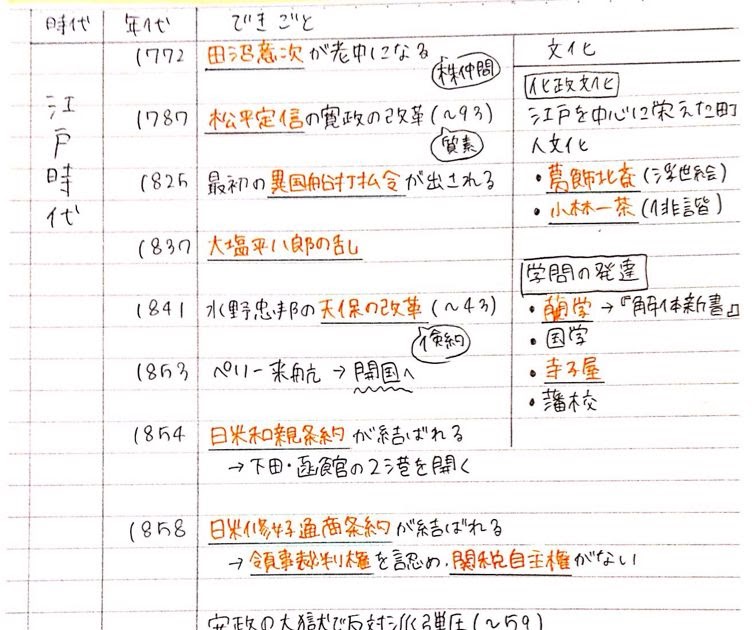 時代 年代 できごと
江戸時代
1772 田沼意次が老中になる
株仲間
1787 松平定信の寛政の改革(~93)
質素
1825 最初の異国船打払令が出される
1837 大塩平八郎の乱
1841 水野忠邦の天保の改革(~43)
倹約
1853 ペリー来航 → 開国へ
1854 日米和親条約が結ばれる
→下田・函館の2港を開く
1858 日米修好通商条約が結ばれる
→領事裁判権を認め、関税自主権がない
安政の大獄で反対派弾圧(~59)
文化
化政文化
江戸を中心に栄えた町
人文化
・葛飾北斎(浮世絵)
・小林一茶(俳諧)
学問の発達
・蘭学→『解体新書』
・国学
・寺子屋
・藩校